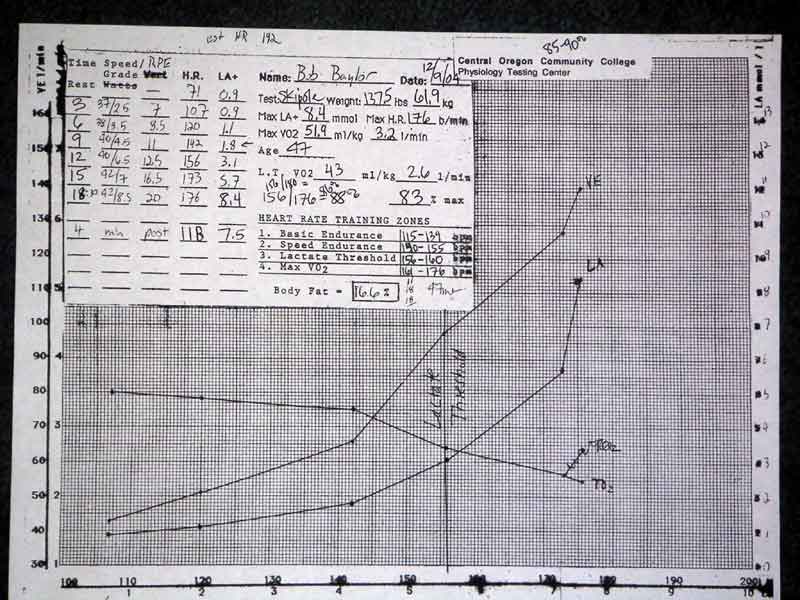 est HR 192
85-90%
Central Oregon Community College
Physiology Testing Center
Time Speed/ RPE
Grade Vert H.R. LA+
Rest Watts — 71 0.9
3 37/2.5 7 107 0.9
6 38/3.5 8.5 120 1.1
9 40/4.5 11 142 1.8
12 40/6.5 12.5 156 3.1
15 42/7 16.5 173 5.7
18:30 42/8.5 20 176 8.4
4 min post 118 7.5
Name: Bob Baylor Date: 12/9/04
Test: Skipole Weight: 137.5 lbs 61.9 kg
Max LA+ 8.4 mmol Max H.R. 176 b/min
Max VO2 51.9 ml/kg 3.2 l/min
Age 47
L.T. VO2 43 ml/kg 2.6 l/min
156/176 = 88% 83 % max
HEART RATE TRAINING ZONES
1. Basic Endurance 115-139 bpm
2. Speed Endurance 140-155 bpm
3. Lactate Threshold 156-160 bpm
4. Max VO2 161-176 bpm
Body Fat = 16.6%
VE l/min
LA mmol/l
VE
LA
Lactate Threshold
160
6
110 5
100
90 4
80
70 3
60
50 2
40
30 1
13
12
8
7
6
5
4
3
2
1
0
100 110 120 130 140 150 160 170 180 190 200
1 2 3 4 5 6 7 8 9 10